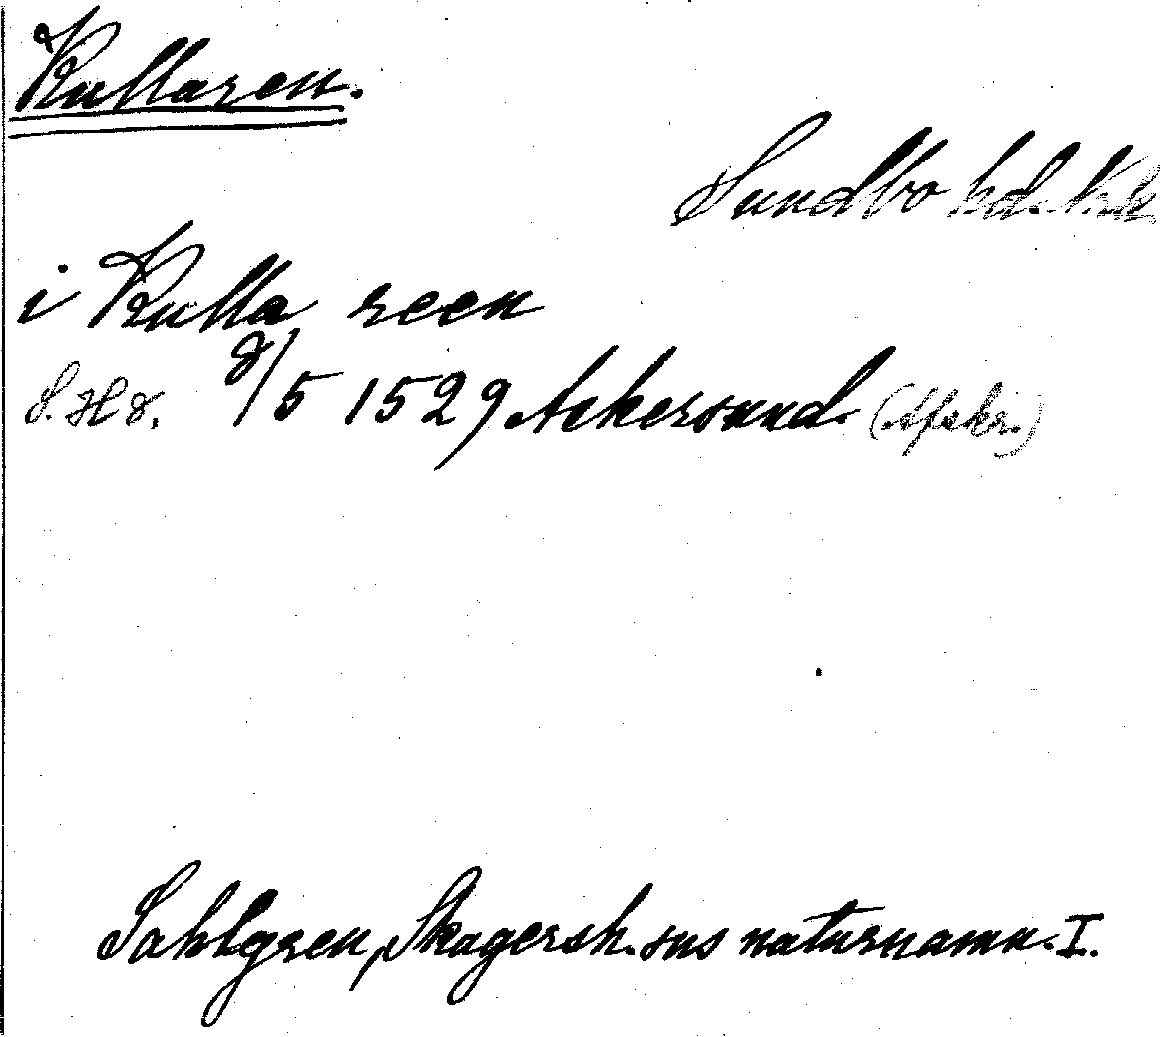 Kullaren.
Sundbo hd. Nrk
i Kulla reen
S. H 8. 8/5 1529 Askersund (Afskr.)
Sahlgren, Skagersh. sns naturnamn. I.